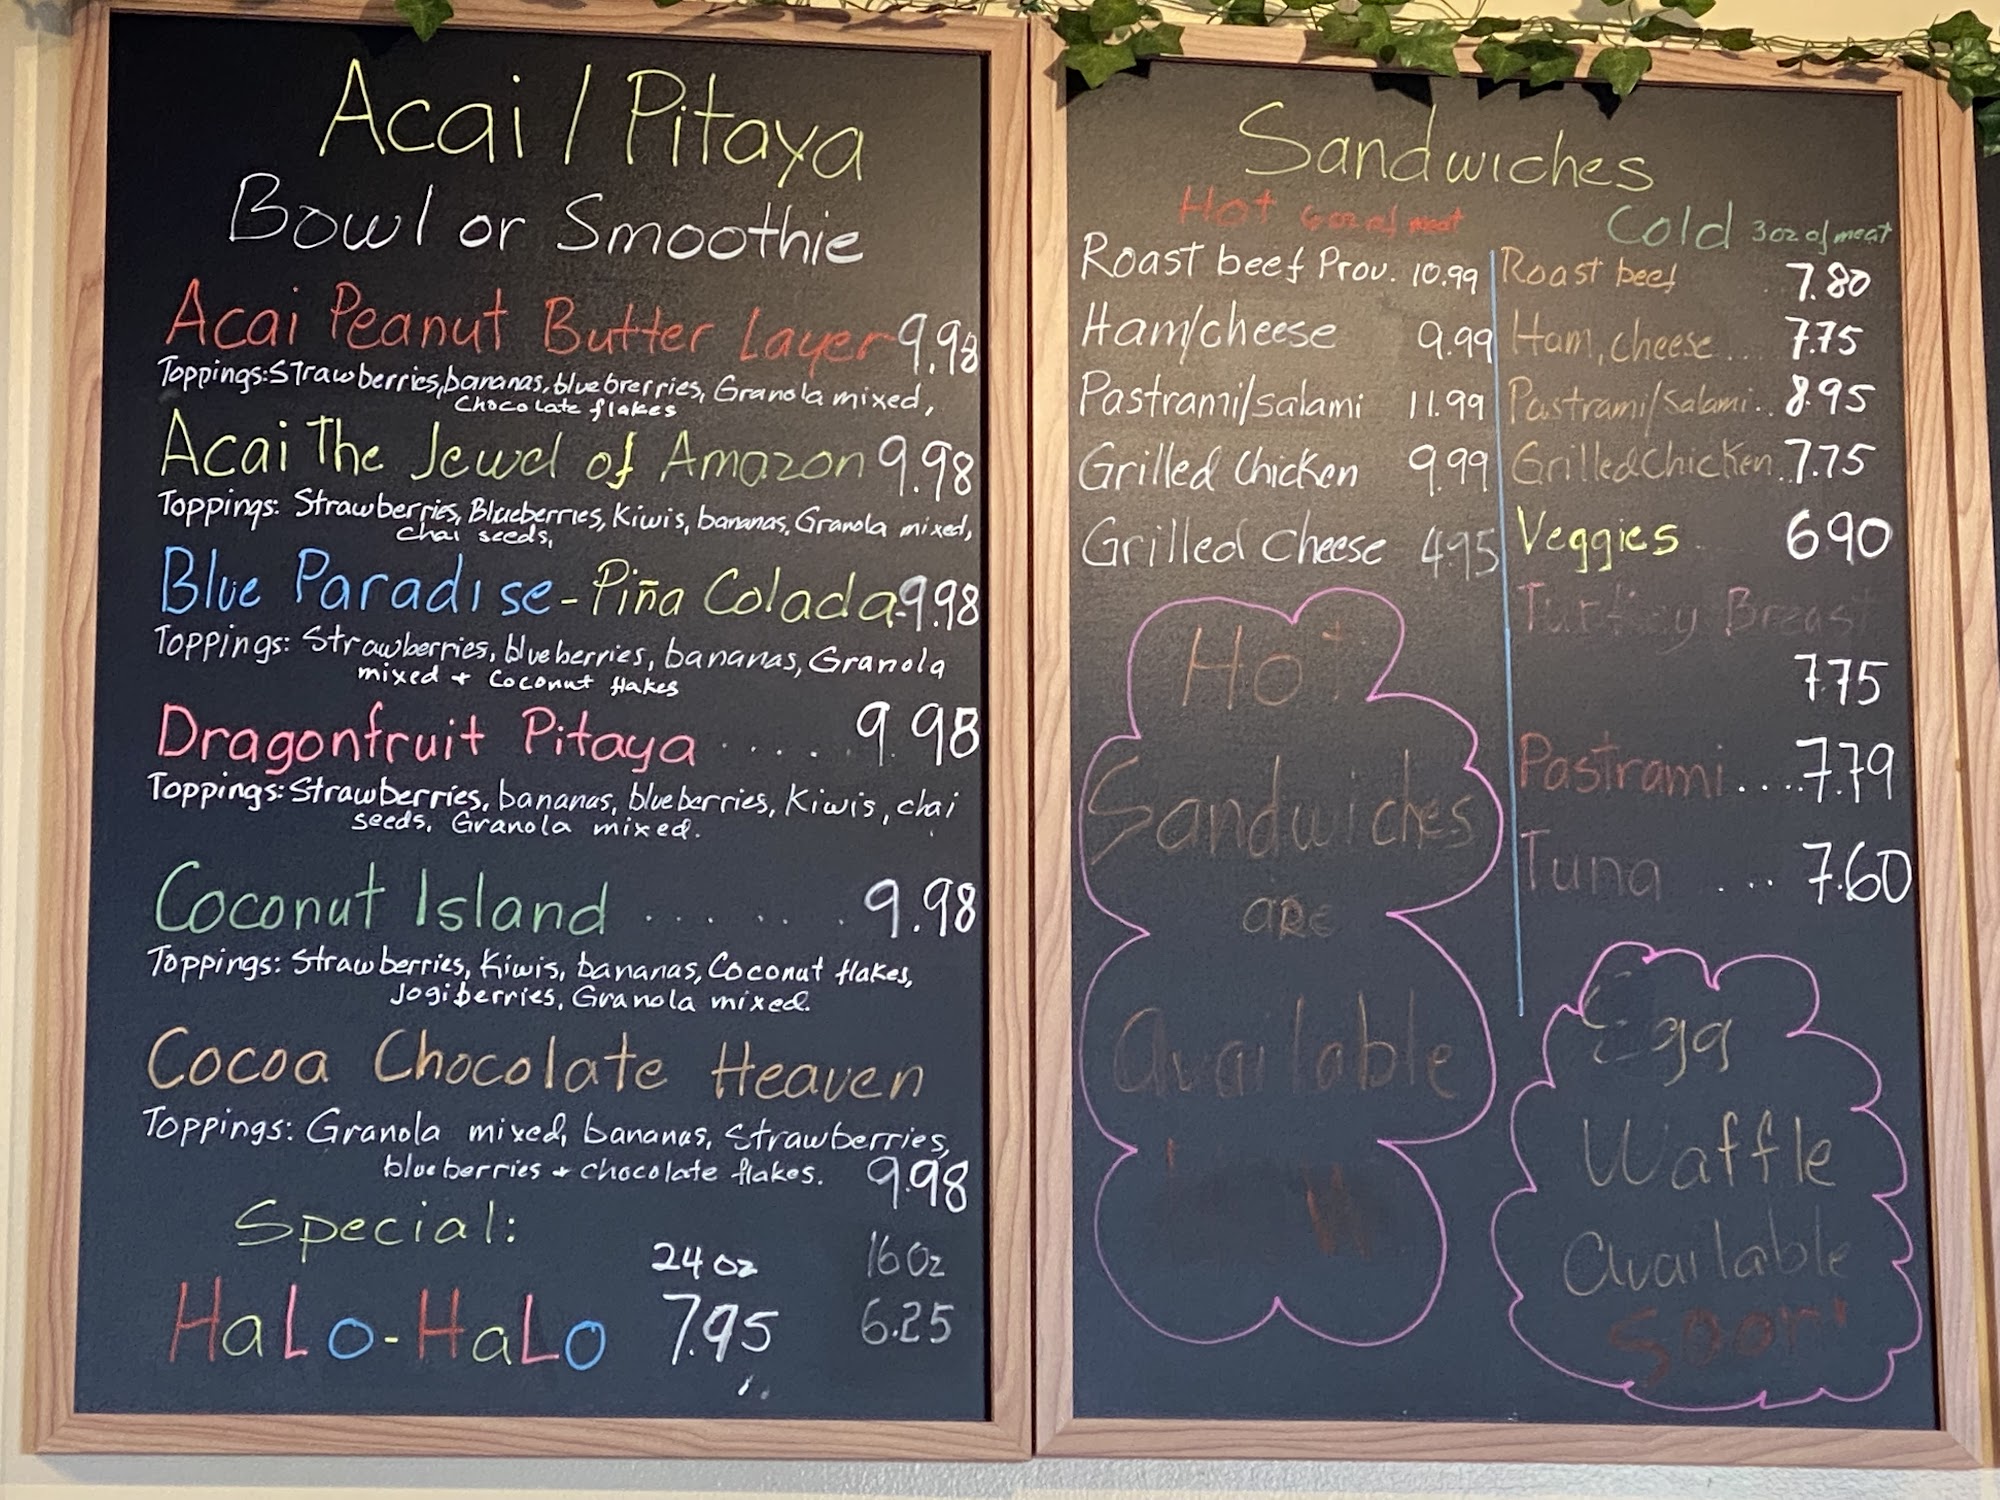 Acai / Pitaya
Bowl or Smoothie
Acai Peanut Butter Layer 9.98
Toppings: Strawberries, bananas, bluebrerries, Granola mixed,
Chocolate flakes
Acai The Jewel of Amazon 9.98
Toppings: Strawberries, Blueberries, Kiwis, bananas, Granola mixed,
Chai seeds,
Blue Paradise - Piña Colada - 9.98
Toppings: Strawberries, blueberries, bananas, Granola
mixed + Coconut flakes
Dragonfruit Pitaya .... 9.98
Toppings: Strawberries, bananas, blueberries, Kiwis, chai
seeds, Granola mixed.
Coconut Island ...... 9.98
Toppings: Strawberries, Kiwis, bananas, Coconut flakes,
Jogiberries, Granola mixed.
Cocoa Chocolate Heaven
Toppings: Granola mixed, bananas, Strawberries,
blueberries + chocolate flakes. 9.98
Special:
24 oz 16 oz
HaLo-HaLo 7.95 6.25
Sandwiches
Hot 6 oz of meat
Roast beef Prov. 10.99
Ham/cheese 9.99
Pastrami/salami 11.99
Grilled Chicken 9.99
Grilled Cheese 4.95
Hot
Sandwiches
are
Available
Cold 3 oz of meat
Roast beef 7.80
Ham, cheese... 7.75
Pastrami/Salami.. 8.95
Grilled Chicken.. 7.75
Veggies 6.90
Turkey Breast
7.75
Pastrami .... 7.79
Tuna ... 7.60
Egg
Waffle
Available
Soon!